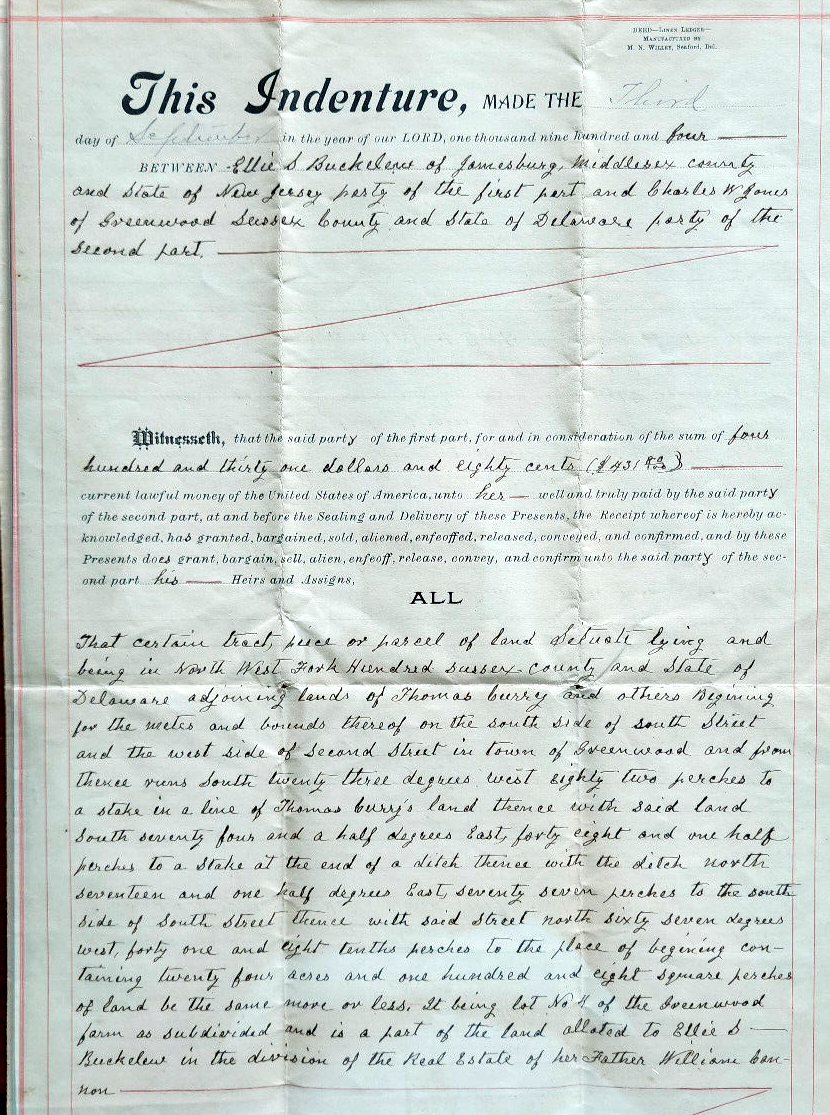 DEED—LINEN LEDGER—
MANUFACTURED BY
M. N. WILLEY, Seaford, Del.
This Indenture, MADE THE Third
day of September in the year of our LORD, one thousand nine hundred and four
BETWEEN Ellie S Buckelew of Jamesburg, Middlesex county
and State of New Jersey party of the first part and Charles W Jones
of Greenwood Sussex County and State of Delaware party of the
second part.
Witnesseth, that the said party of the first part, for and in consideration of the sum of four
hundred and thirty one dollars and eighty cents ($431 80/100)
current lawful money of the United States of America, unto her well and truly paid by the said party
of the second part, at and before the Sealing and Delivery of these Presents, the Receipt whereof is hereby ac-
knowledged, has granted, bargained, sold, aliened, enfeoffed, released, conveyed, and confirmed, and by these
Presents does grant, bargain, sell, alien, enfeoff, release, convey, and confirm unto the said party of the sec-
ond part his Heirs and Assigns,
ALL
That certain tract, piece or parcel of land Situate lying and
being in North West Fork Hundred Sussex county and State of
Delaware adjoining lands of Thomas Curry and others Begining
for the metes and bounds thereof on the south side of south Street
and the west side of Second Street in town of Greenwood and from
thence runs South twenty three degrees west Eighty two perches to
a stake in a line of Thomas Curry's land thence with said land
South seventy four and a half degrees East, forty eight and one half
perches to a Stake at the end of a ditch thence with the ditch north
seventeen and one half degrees East, seventy seven perches to the south
side of South Street thence with said Street north sixty seven degrees
west, forty one and eight tenths perches to the place of begining con-
taining twenty four acres and one hundred and eight square perches
of land be the same more or less. It being lot No 4 of the Greenwood
farm as subdivided and is a part of the land alloted to Ellie S
Buckelew in the division of the Real Estate of her Father William Can-
non